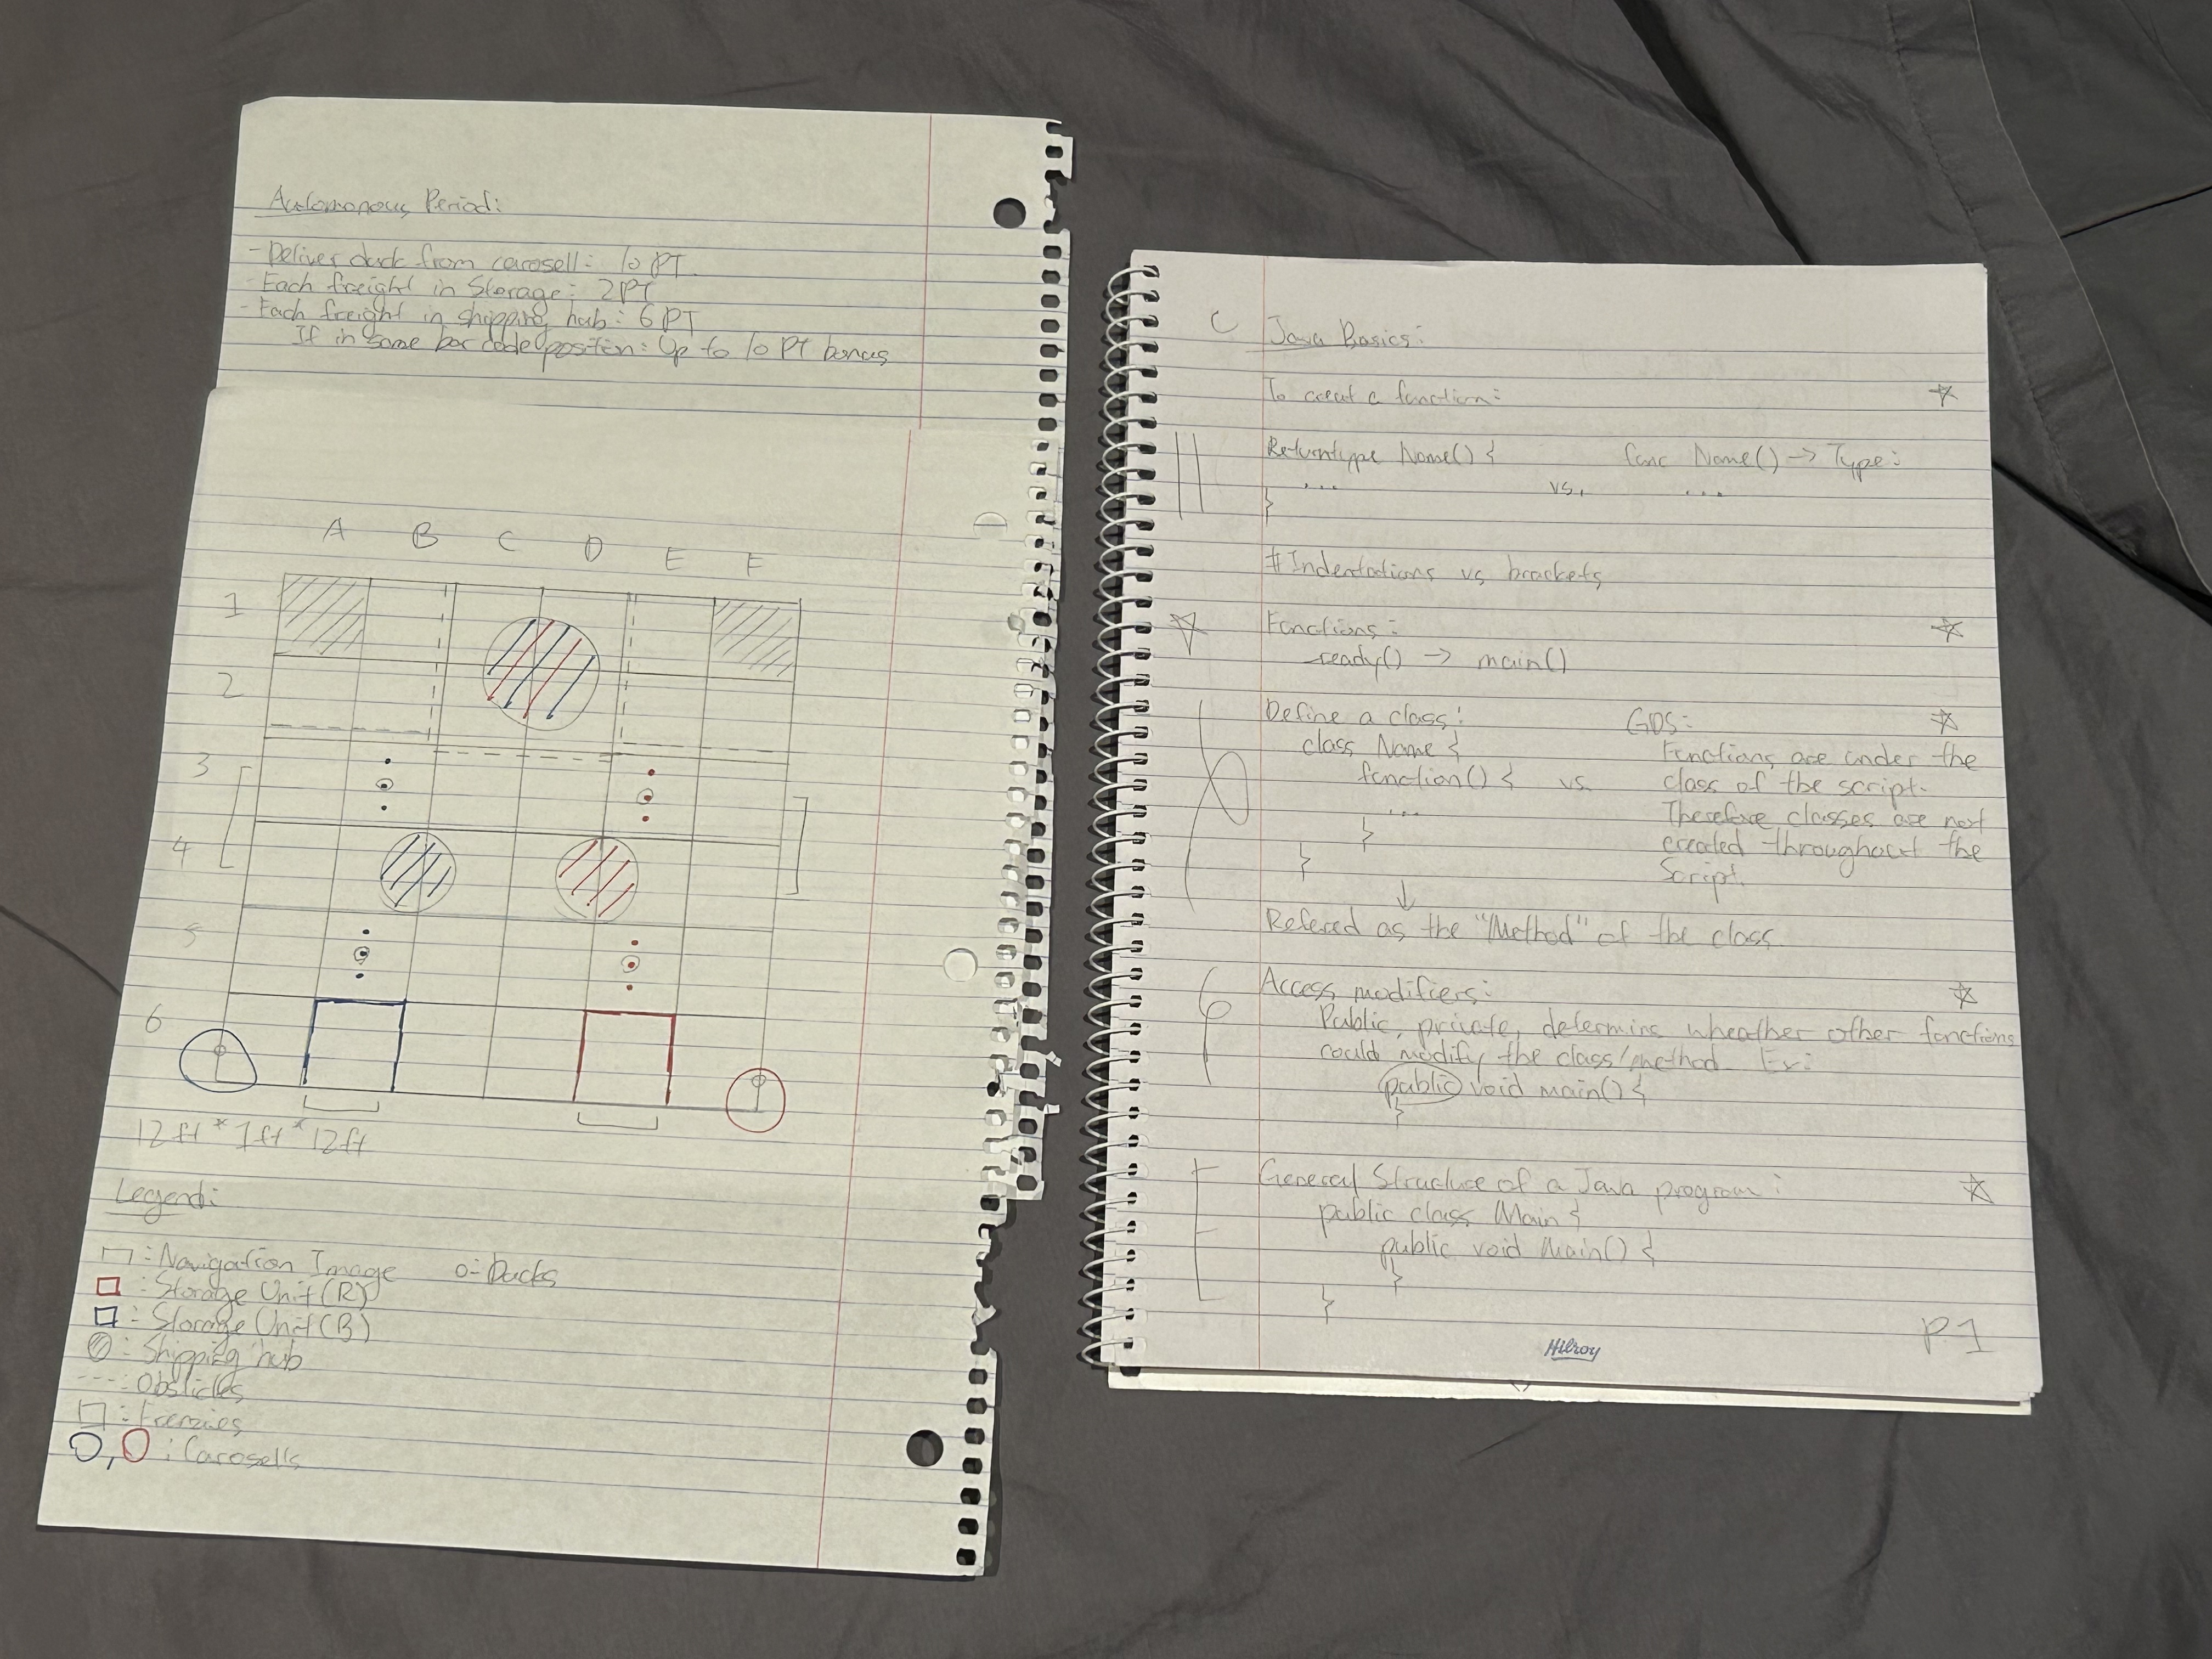 Autonomous Period:
- Deliver duck from carosell: 10 PT.
- Each freight in Storage: 2PT
- Each freight in shipping hub: 6 PT
If in same bar code/position: Up to 10 PT bonus
A B C D E F
1
2
3
4
5
6
12 ft * 1 ft * 12 ft
Legend:
: Navigation Image o - Ducks
: Storage Unit (R)
: Storage Unit (B)
: Shipping hub
---: Obsticles
: Freories
, : Carosells
C Java Basics:
To creat a function: ☆
Returntype Name() { func Name() -> Type:
.... vs. ....
}
# Indentations vs brackets
☆ Functions: ☆
ready() -> main()
Define a class: GDS: ☆
class Name { Functions are under the
function() { vs class of the script.
... Therefore classes are not
} created throughout the
} script.
↓
Refered as the "Method" of the class.
Access modifiers: ☆
Public, private, determins wheather other functions
could modify the class/method Ex:
public void main() {
}
General Structure of a Java program: ☆
public class Main {
public void Main() {
}
}
Hilroy
P.1